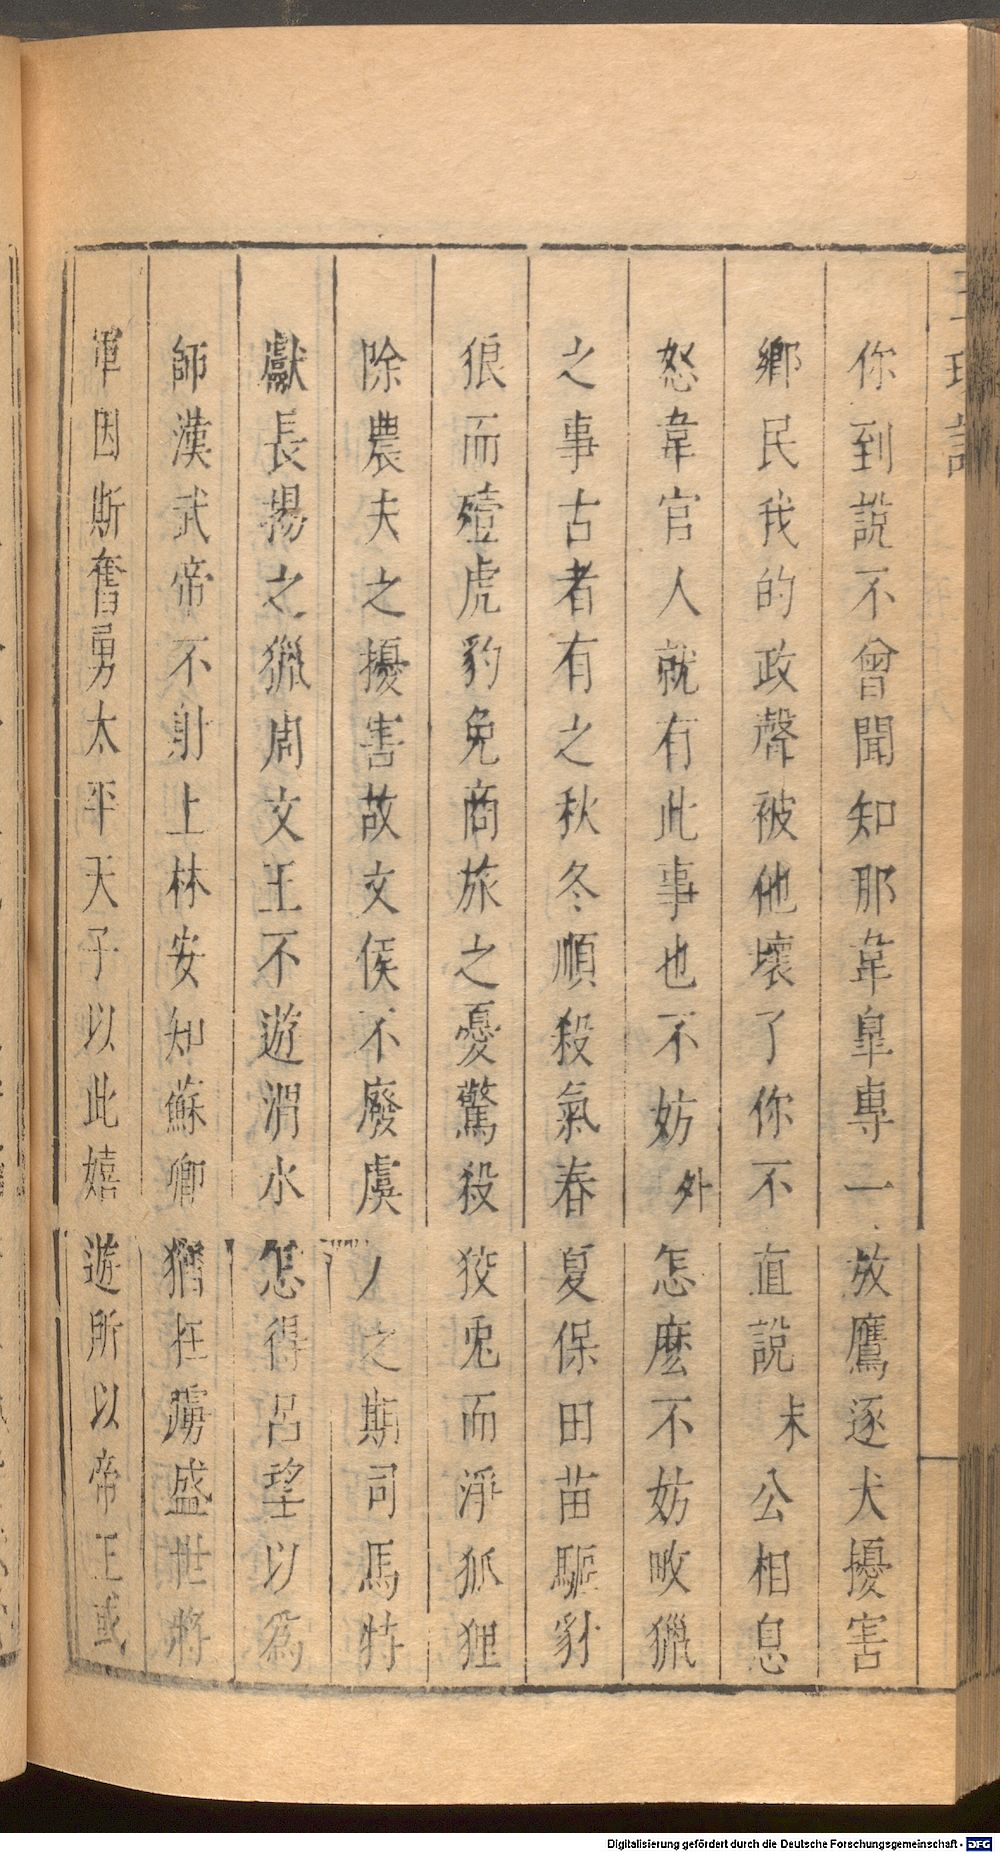 你到說不曾聞知那韋臯專一放鷹逐犬擾害
鄉民我的政聲被他壞了你不直說末公相息
怒韋官人就有此事也不妨外怎麼不妨畋獵
之事古者有之秋冬順殺氣春夏保田苗驅豺
狼而殪虎豹免商旅之憂驚殺狡兎而淨狐狸
除農夫之擾害故文侯不廢虞人之期司馬特
獻長揚之獵周文王不遊渭水怎得呂望以爲
師漢武帝不射上林安知蘇卿猶在虜盛世將
軍因斯奮勇太平天子以此嬉遊所以帝王或
Digitalisierung gefördert durch die Deutsche Forschungsgemeinschaft - DFG